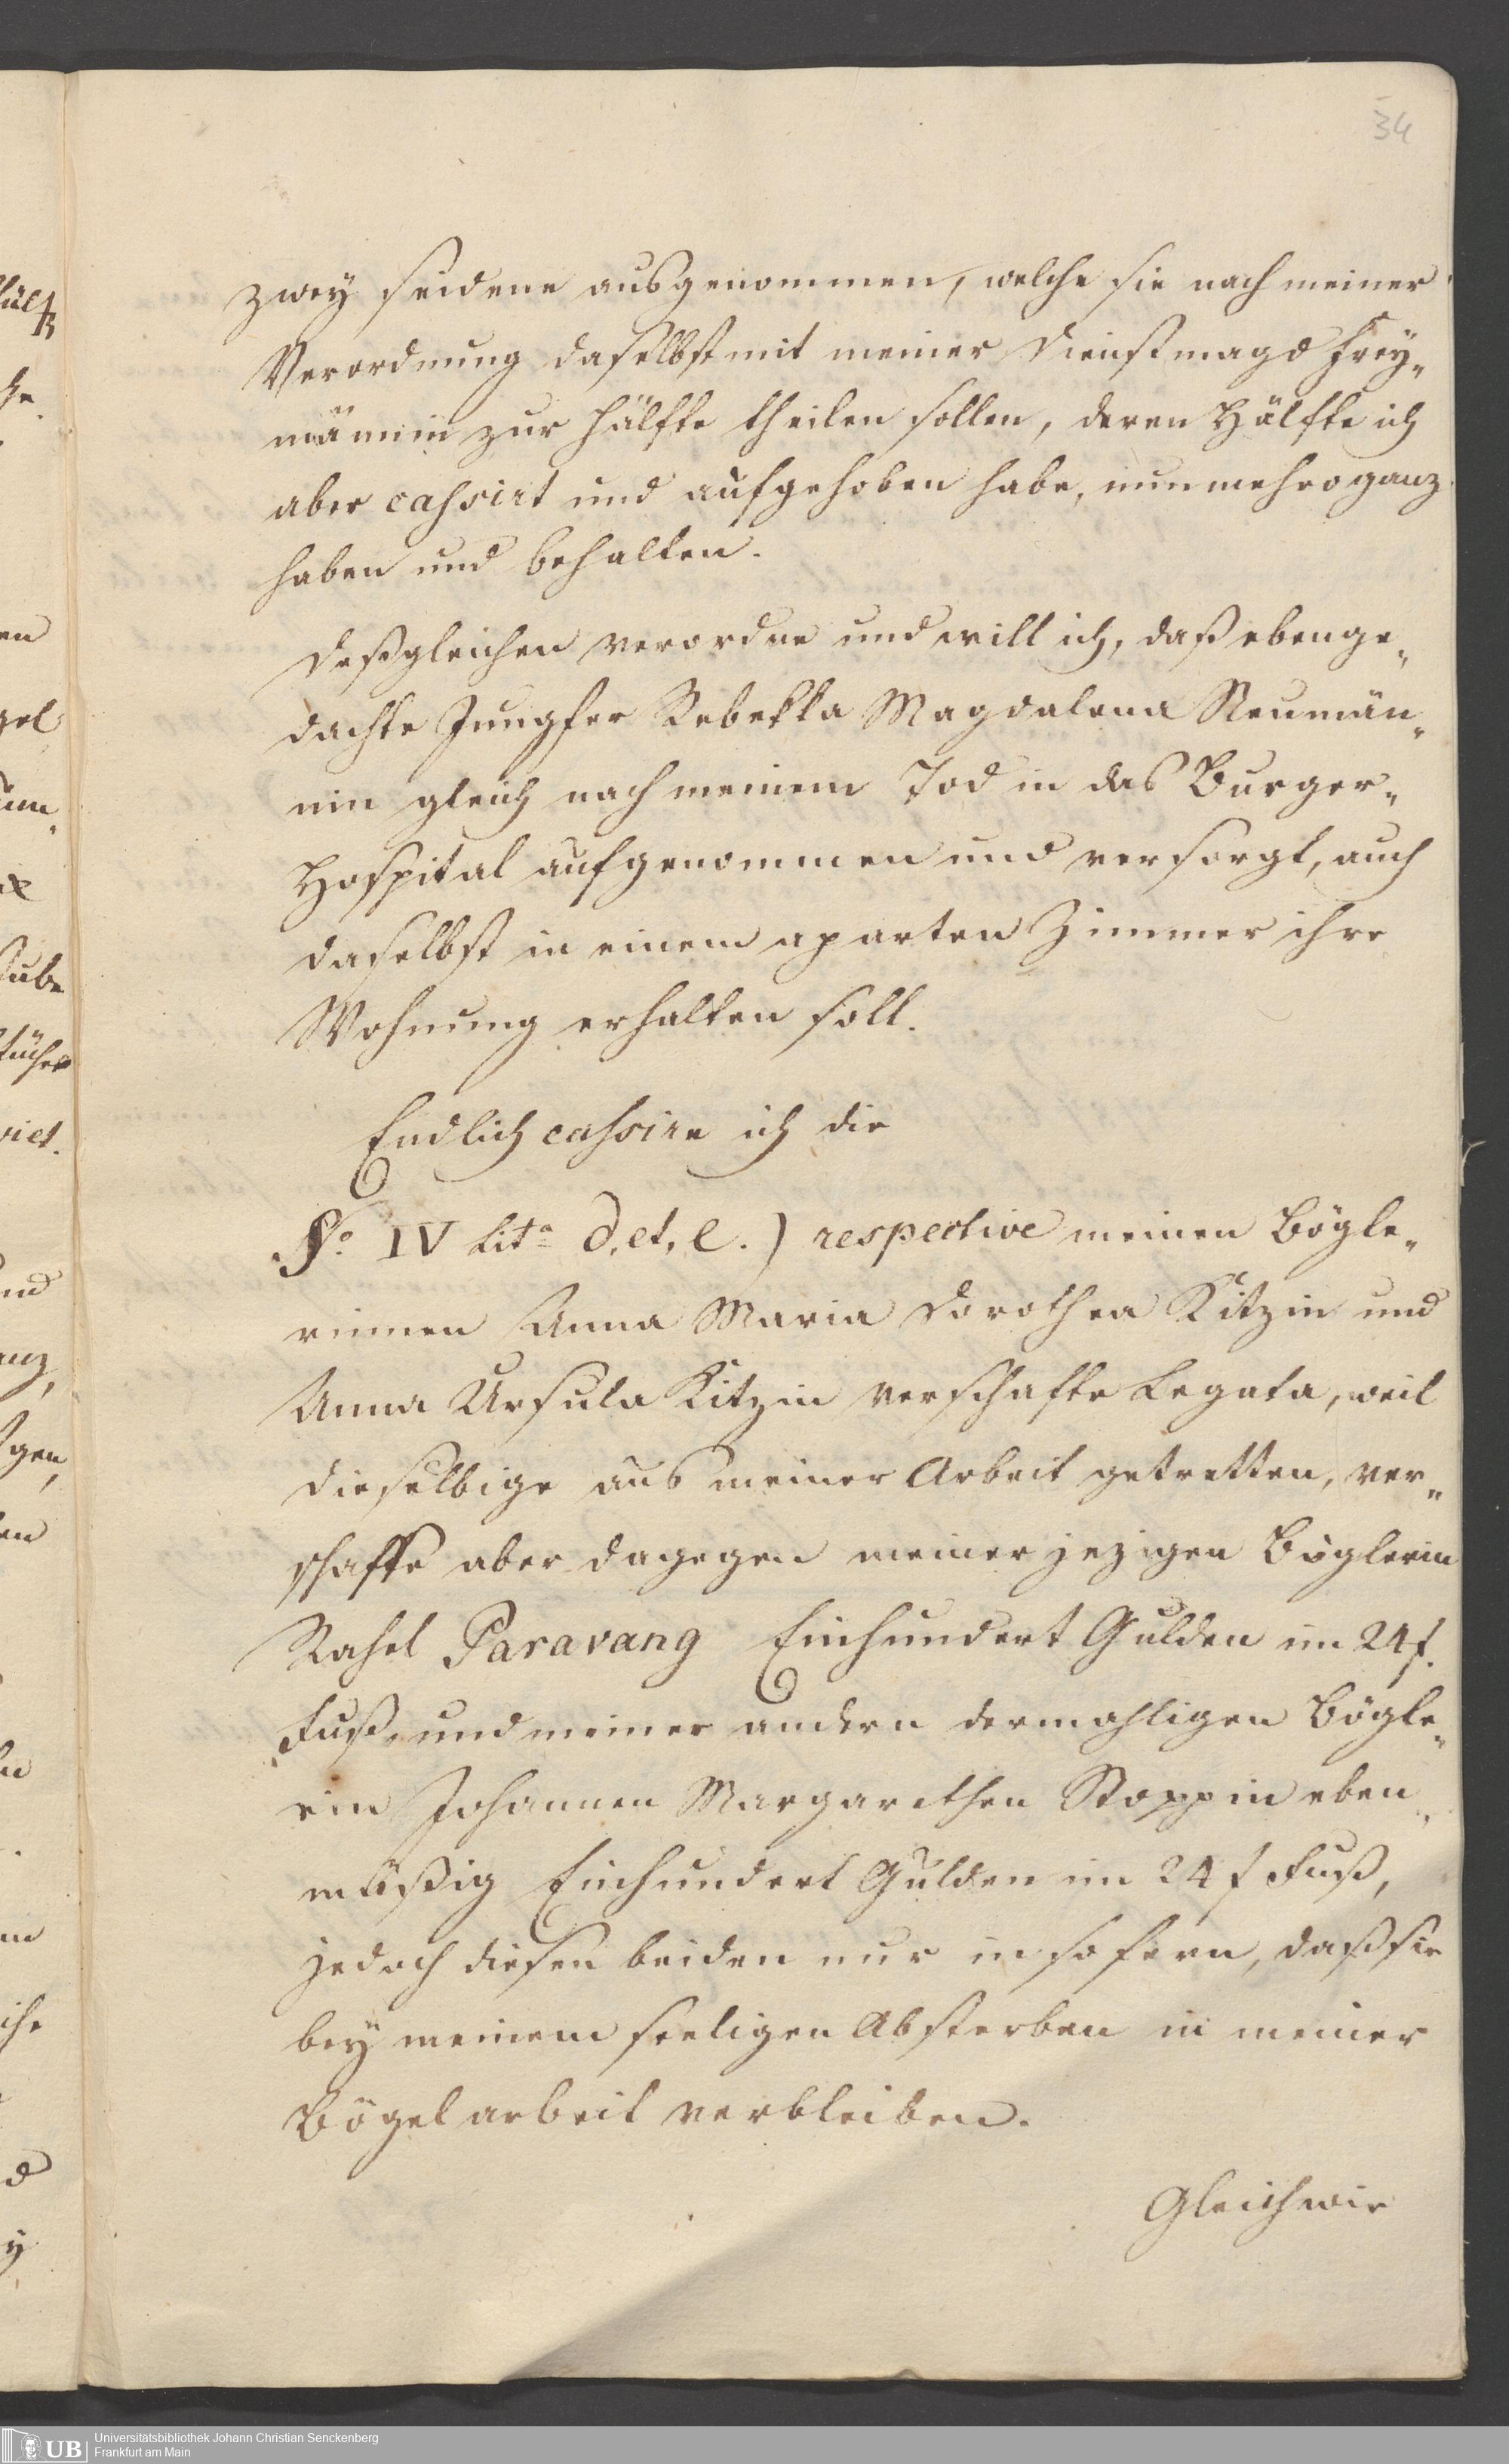 34
zwey seidene ausgenommen, welche sie nach meiner
Verordnung daselbst mit meiner Dienstmagd Frey„
männin zur Hälfte theilen sollen, deren Hälfte ich
aber cassirt und aufgehoben habe, nunmehro ganz
haben und behalten.
Deßgleichen verordne und will ich, daß ebenge„
dachte Jungfer Rebekka Magdalena Neumän„
nin gleich nach meinem Tod in das Burger„
Hospital aufgenommen und versorgt, auch
daselbst in einem aparten Zimmer ihre
Wohnung erhalten soll.
Endlich cassire ich die
No. IV Lita d, et, e.) respective meinen Bögle„
rinnen Anna Maria Dorothea Kitzin und
Anna Ursula Kitzin verschafte Legata, weil
dieselbige aus meiner Arbeit getretten, ver„
schaffe aber dagegen meiner jezigen Büglerin
Rahel Paravang Einhundert Gulden im 24 f.
Fuß, und meiner andern dermahligen Bögle„
rin Johannen Margarethen Stoppin eben„
mäßig Einhundert Gulden im 24 f Fuß,
jedoch diesen beiden nur in sofern, daß sie
bey meinem seeligen Absterben in meiner
Bögelarbeit verbleiben.
Gleichwie
UB
Universitätsbibliothek Johann Christian Senckenberg
Frankfurt am Main